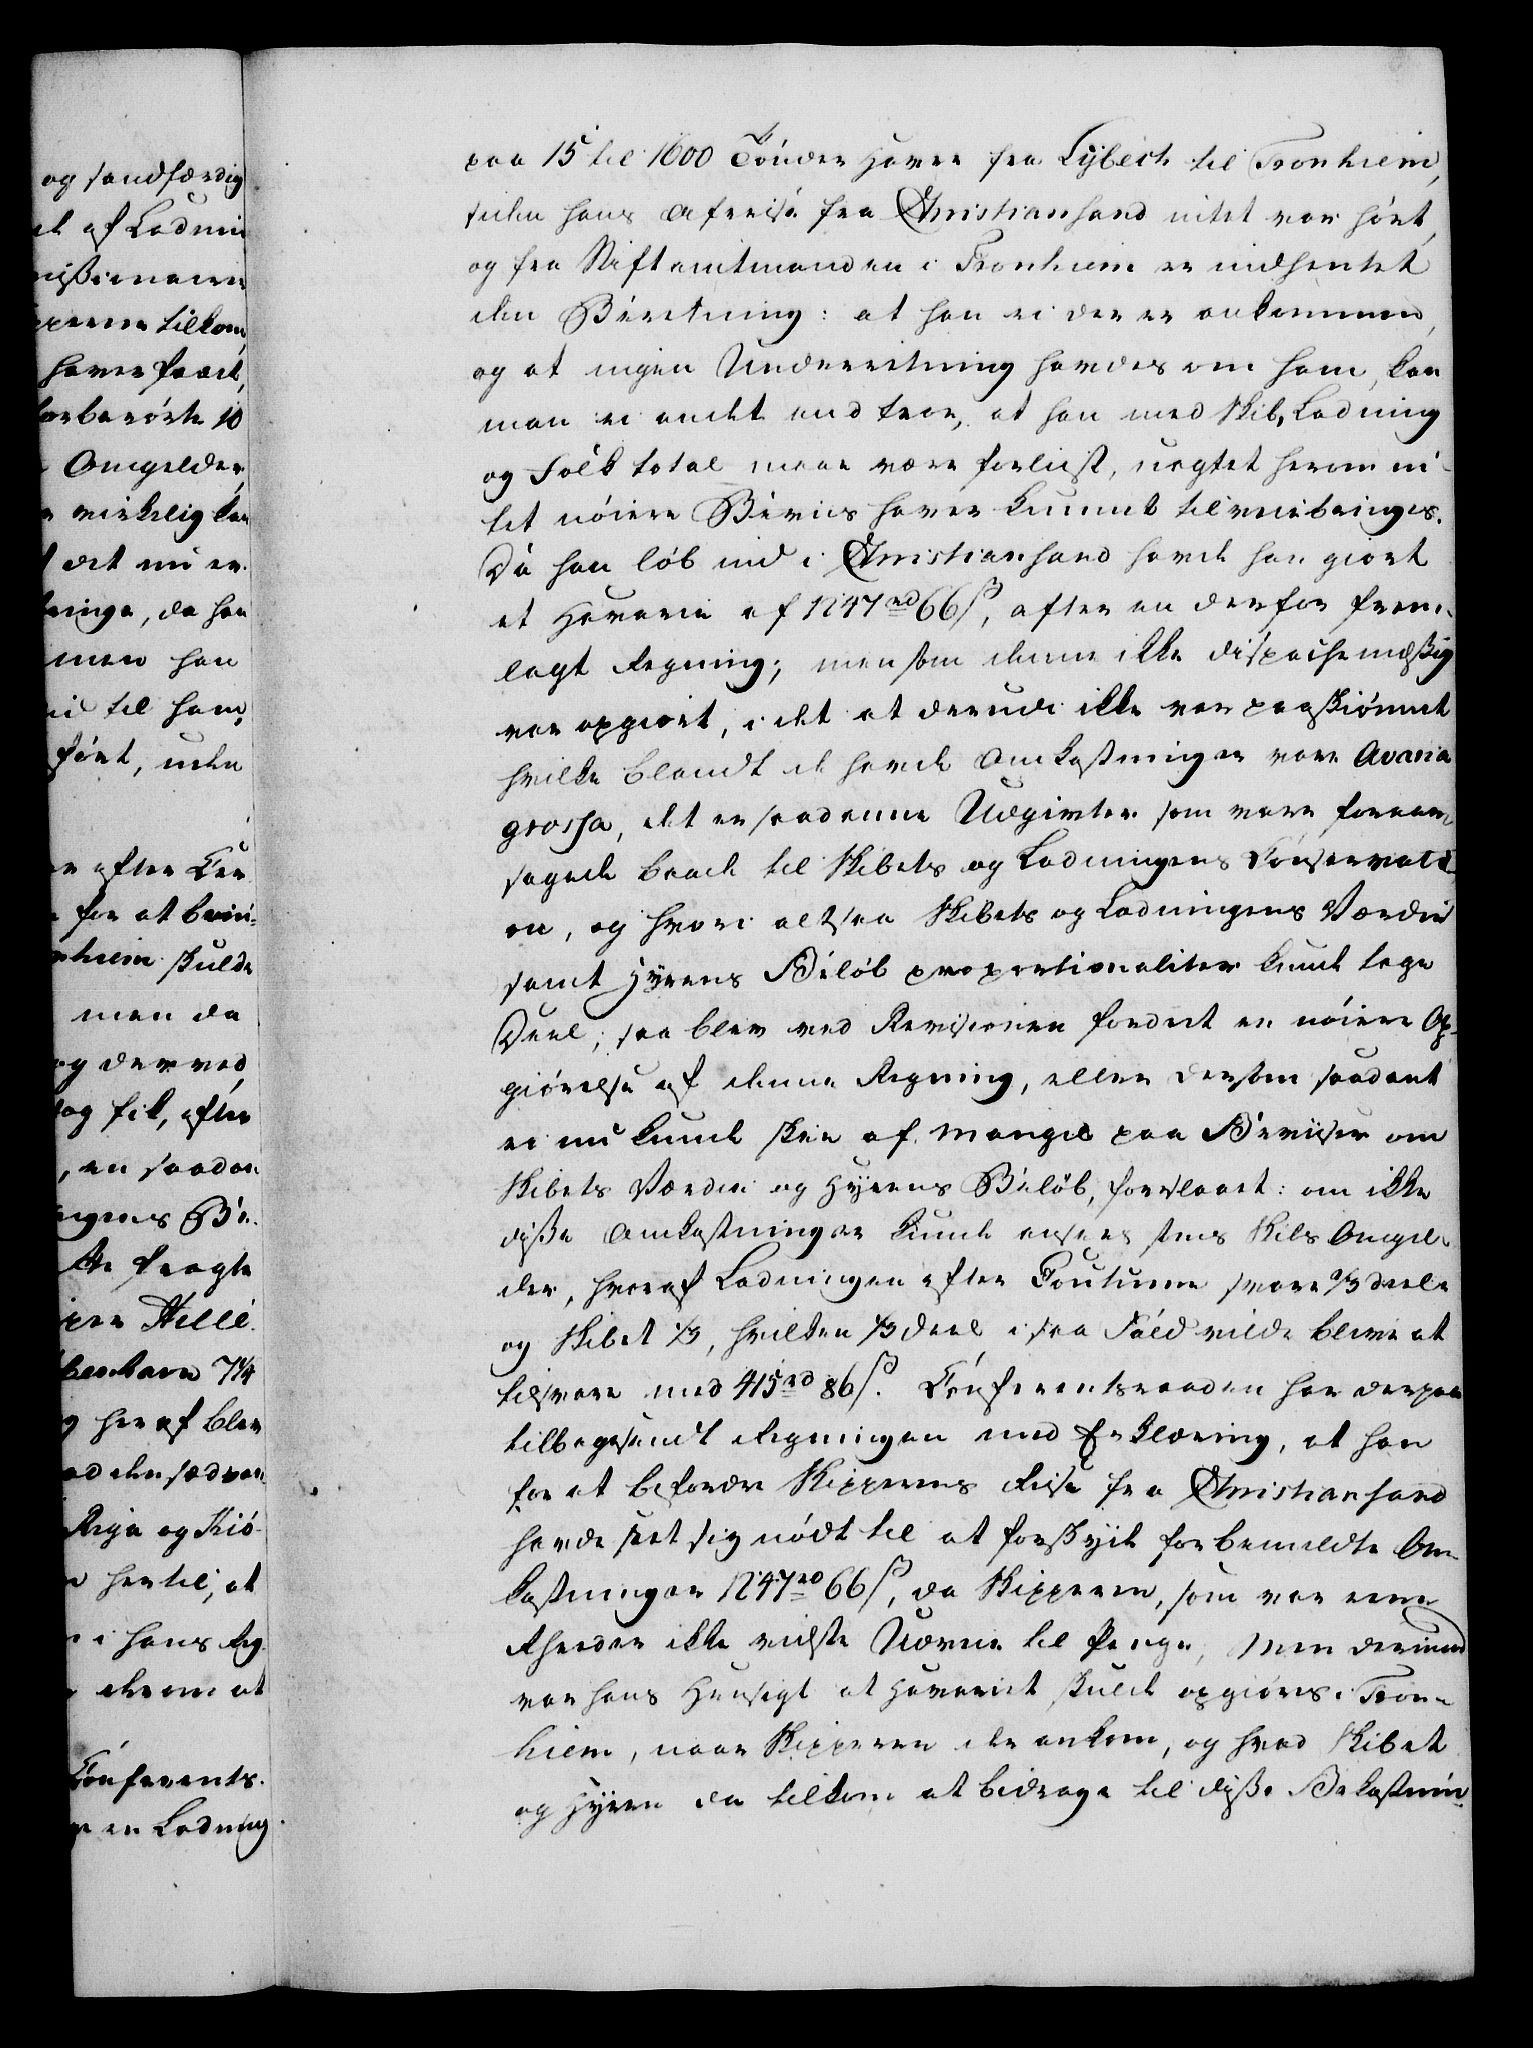 og sandfærdig
af Ladnin
tilkom,
haver faaet,
forberørte 10
Omgelder,
virkelig kan
det nu er
bringe, da han
men han
til ham,
ført, uden
efter
for at
hiem skulde
men da
og derved
og fik, efter
, en saadan
fragte
Hellé.
benhavn 7¼
her af blev
Riga og Kiö-
hertil, at
i hans Reg.
Conferents.
en Ladning
paa 15 til 1600 Tønder Havre fra Lybech til Tronhiem,
siden hans Afreise fra Christiansand intet var hørt,
og fra Stiftamtmanden i Tronhiem er indhentet
den Beretning: at han ei der er ankommen,
og at ingen Underretning havdes om ham, kan
man ei andet end troe, at han med Skib, Ladning
og Folk total maae være forliist, uagtet herom in-
tet nøiere Beviis haver kunnet tilveiebringes.
Da han løb ind i Christiansand havde han giort
et Havarie af 1247 rd 66 s, efter en derfor frem-
lagt Regning; men som denne ikke dispachemæssig
var opgiort, i det at derudi ikke var paaskiønnet
hvilke blandt de havde Omkostninger vare Avaria
grossa, det er saadanne Udgivter som vare foraar-
sagede baade til Skibets og Ladningens Conservati-
on, og hvori altsaa Skibets og Ladningens Værdie
samt Hyrens Beløb proportionaliter kunde tage
Deel; saa blev ved Revisionen fordret en nøiere Op-
giørelse af denne Regning, eller dersom saadant
ei nu kunde skee af Mangel paa Beviser om
Skibets Værdie og Hyrens Beløb, forklaret: om ikke
disse Omkostninger kunde ansees som Skibs Omgel-
der, hvoraf Ladningen efter svare ⅔ deele
og Skibet ⅓, hvilken ⅓ deel i saa Fald vilde blive at
tilsvare med 415 rd 86 s. Conferentsraaden har derpaa
tilbagesendt Regningen med Erklæring, at han
for at befordre Skipperens Reise fra Christiansand
havde seet sig nødt til at forskyde forbemeldte Om-
kostninger 1247 rd 66 s, da Skipperen, som var eene
Rheeder ikke vidste Udveie til Penge, Men derimod
var hans Hensigt at Havariet skulde opgiøres i Tron-
hiem, naar Skipperen der ankom, og hvad Skibet
og Hyren da tilkom at bidrage til disse Bekostnin-